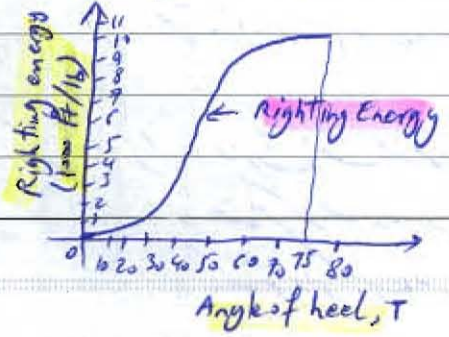 Righting energy
(1000 ft/lb)
11
10
9
8
7
6
5
4
3
2
1
Righting Energy
0 10 20 30 40 50 60 70 75 80
Angle of heel, T